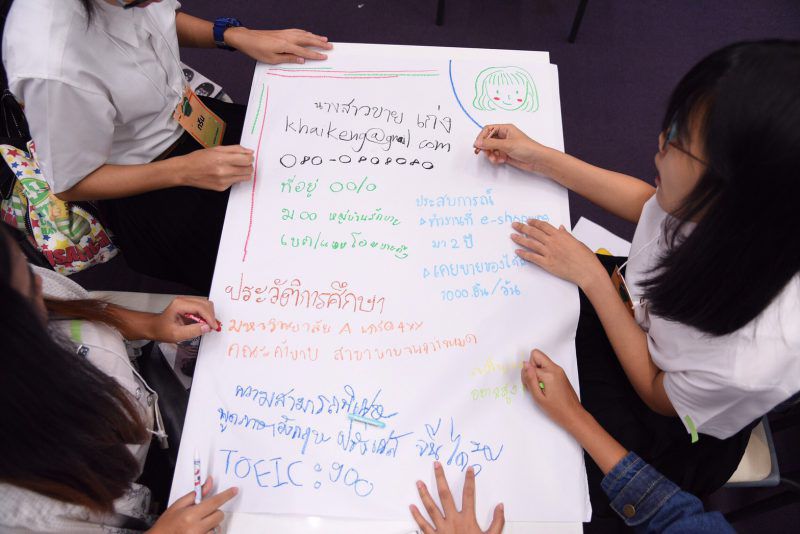 นางสาวขาย เก่ง
khaikeng@gmail com
080-0808080
ที่อยู่ 00/0
ม 00 หมู่บ้านรักขาย
ประสบการณ์
ทำงานที่ e-shopping
มา 2 ปี
เคยขายของได้
1000 ชิ้น/วัน
ประวัติการศึกษา
มหาวิทยาลัย A เกรด 4.xx
คณะค้าขาย สาขาขายจนกว่าจะหมด
ความสามารถพิเศษ
พูดภาษาอังกฤษ ฝรั่งเศส จีน ได้
TOEIC : 900